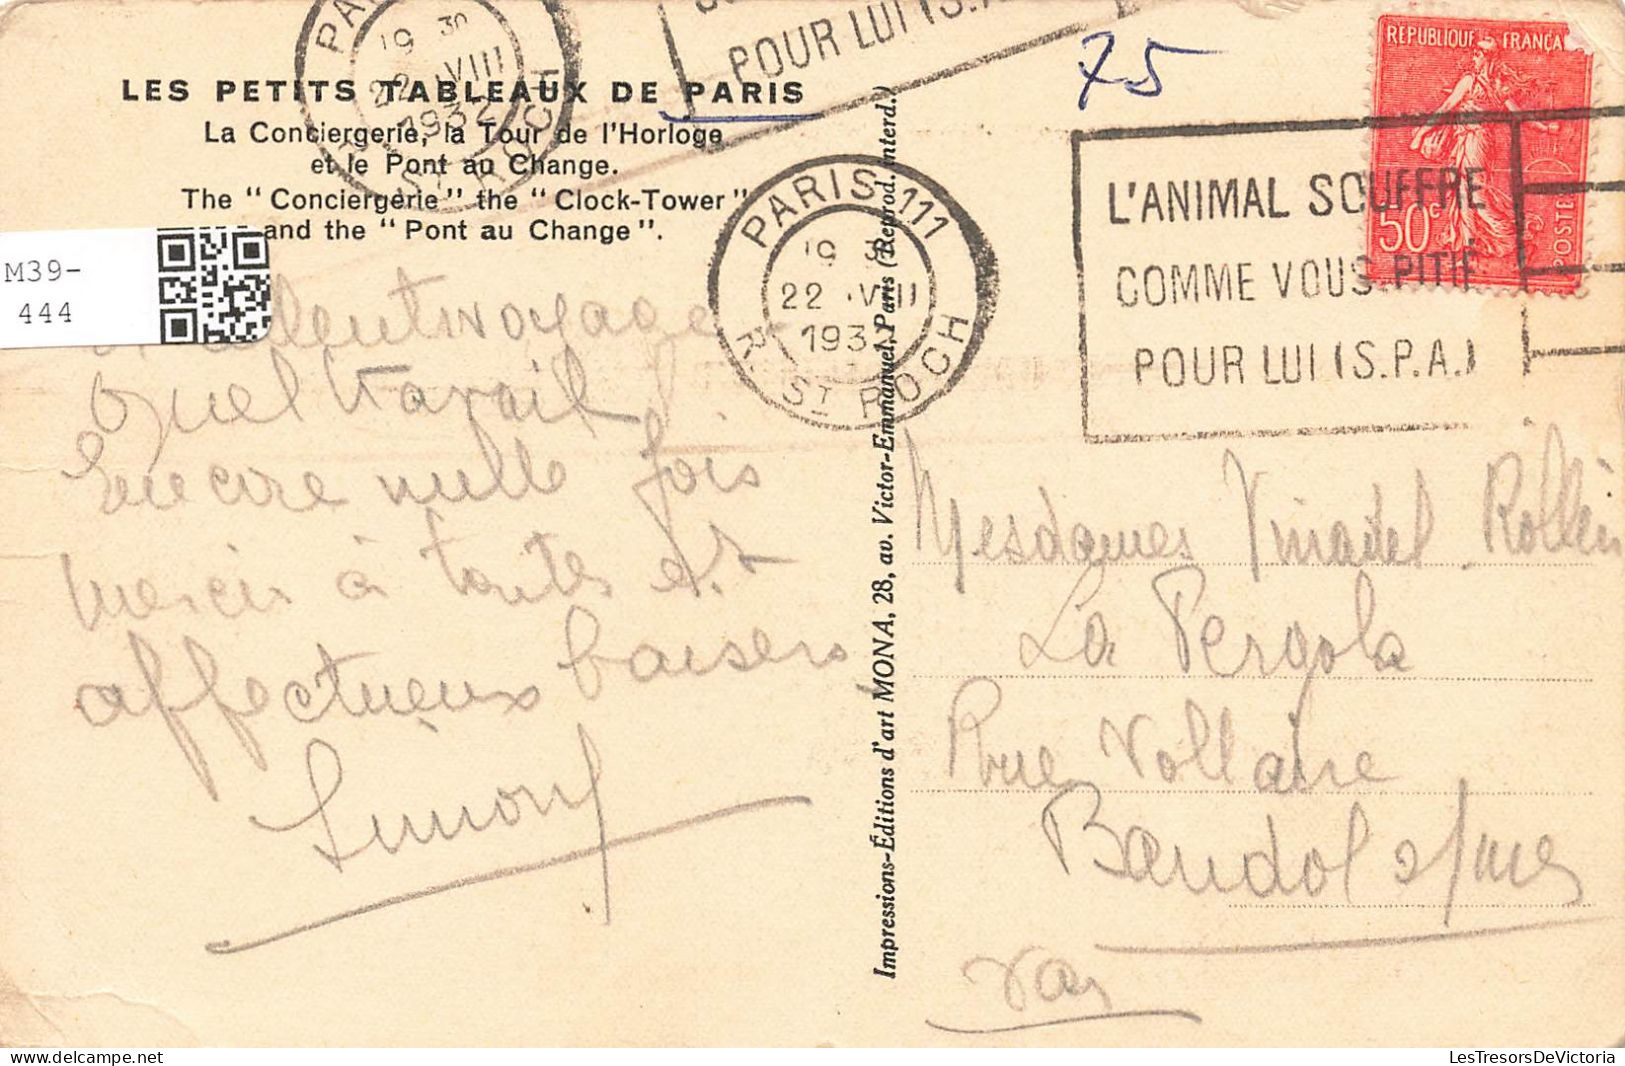 LES PETITS TABLEAUX DE PARIS
La Conciergerie, la Tour de l'Horloge
et le Pont au Change.
The "Conciergerie" the "Clock-Tower"
and the "Pont au Change".
PARIS
19 30
22 .VIII
1932
R. ST ROCH
POUR LUI (S.P.A.)
75
RÉPUBLIQUE FRANÇAISE
50c
POSTES
PARIS 111
19 3
22 .VIII
1932
R. ST ROCH
L'ANIMAL SOUFFRE
COMME VOUS. PITIÉ
POUR LUI (S.P.A.)
M39-
444
voyage
Quel travail
Encore mille fois
merci à toutes et
affectueux baisers
Simone
Impressions-Éditions d'art MONA, 28, av. Victor-Emmanuel, Paris (Reprod. interd.)
Mesdames Rollin
La Pergola
Rue Voltaire
Bandol s/mer
Var
LesTresorsDeVictoria
https://www.delcampe.net